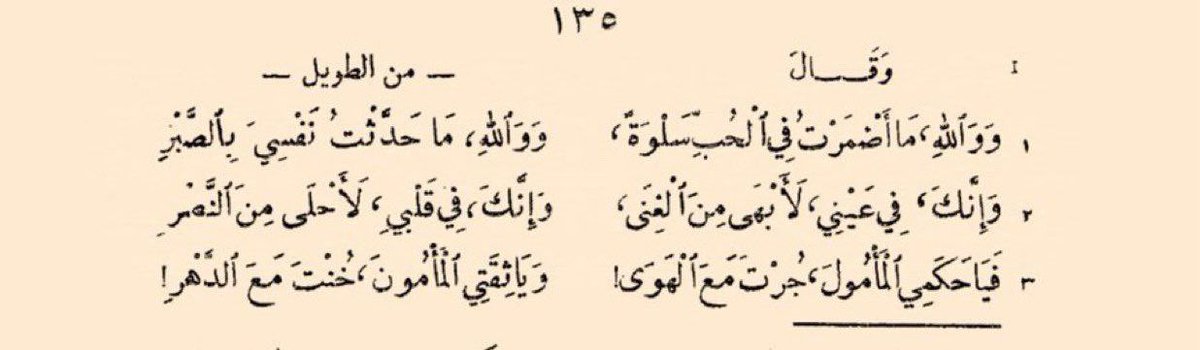 ١٣٥
وَقَـــالَ — من الطويل —
١ وَوَٱللهِ، مَا أَضْمَرْتُ فِي ٱلْحُبِّ سَلْوَةً، وَوَٱللهِ، مَا حَدَّثْتُ نَفْسِيَ بِٱلصَّبْرِ
٢ وَإِنَّكَ، فِي عَيْنِي، لَأَبْهَى مِنَ ٱلْغِنَى، وَإِنَّكَ، فِي قَلْبِي، لَأَحْلَى مِنَ ٱلنَّصْرِ
٣ فَيَا حَكَمِي ٱلْمَأْمُولَ، جُرْتَ مَعَ ٱلْهَوَى! وَيَا ثِقَتِي ٱلْمَأْمُونَ، خُنْتَ مَعَ ٱلدَّهْرِ!